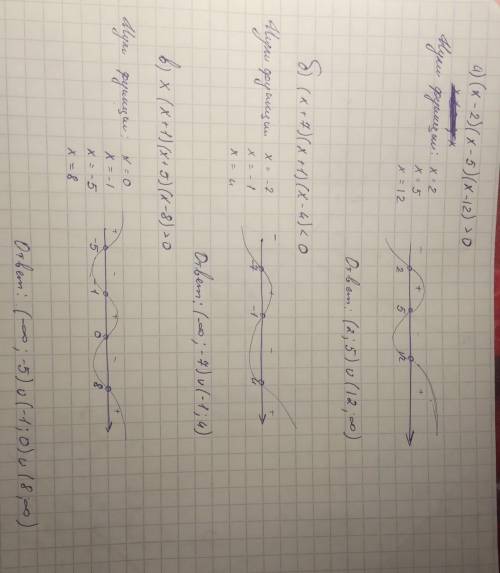 а) (x-2)(x-5)(x-12)>0
Нули функции: x=2
x=5
x=12
- + - +
2 5 12
Ответ: (2;5)∪(12;∞)
б) (x+7)(x+1)(x-4)<0
Нули функции x=-7
x=-1
x=4
- + - +
-7 -1 4
Ответ: (∞;-7)∪(-1;4)
в) x(x+1)(x+5)(x-8)>0
Нули функции: x=0
x=-1
x=-5
x=8
+ - + - +
-5 -1 0 8
Ответ: (-∞;-5)∪(-1;0)∪(8;∞)